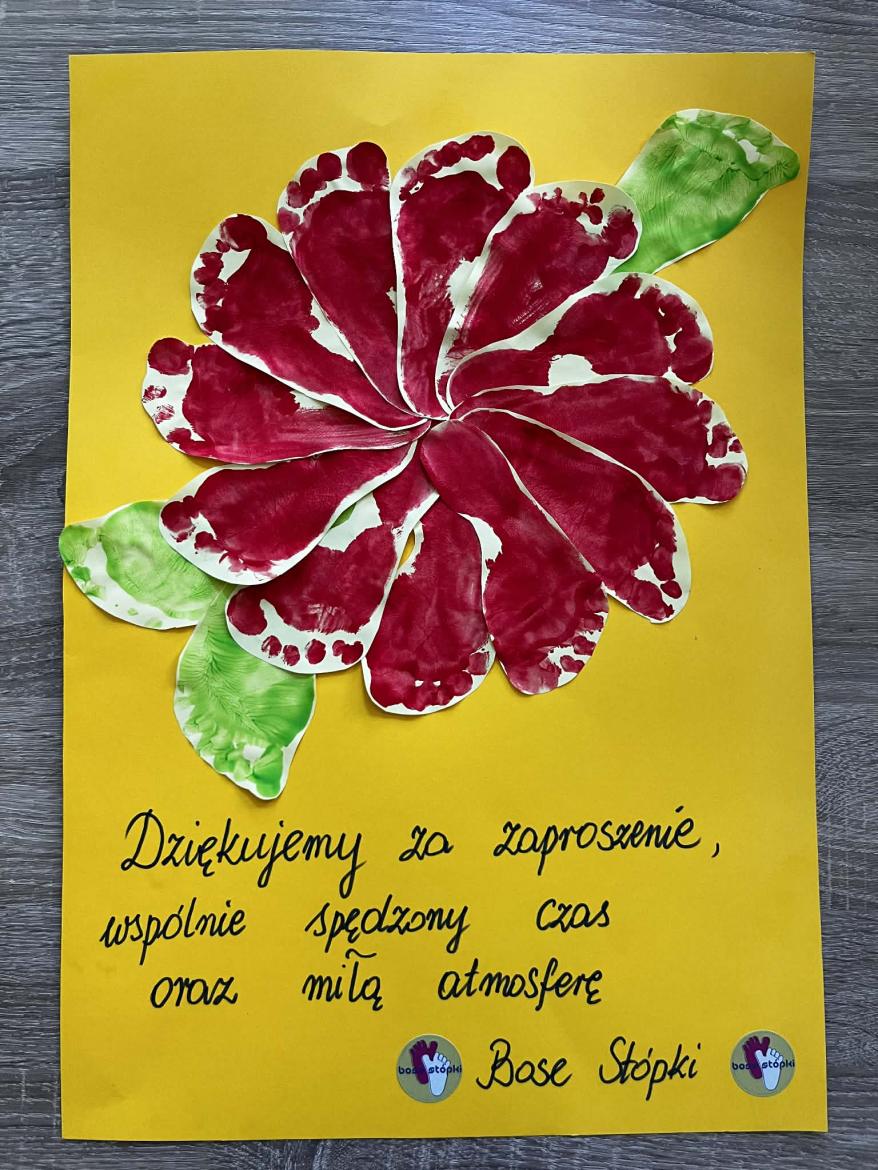 Dziękujemy za zaproszenie,
wspólnie spędzony czas
oraz miłą atmosferę
bose stópki
Bose Stópki
bose stópki